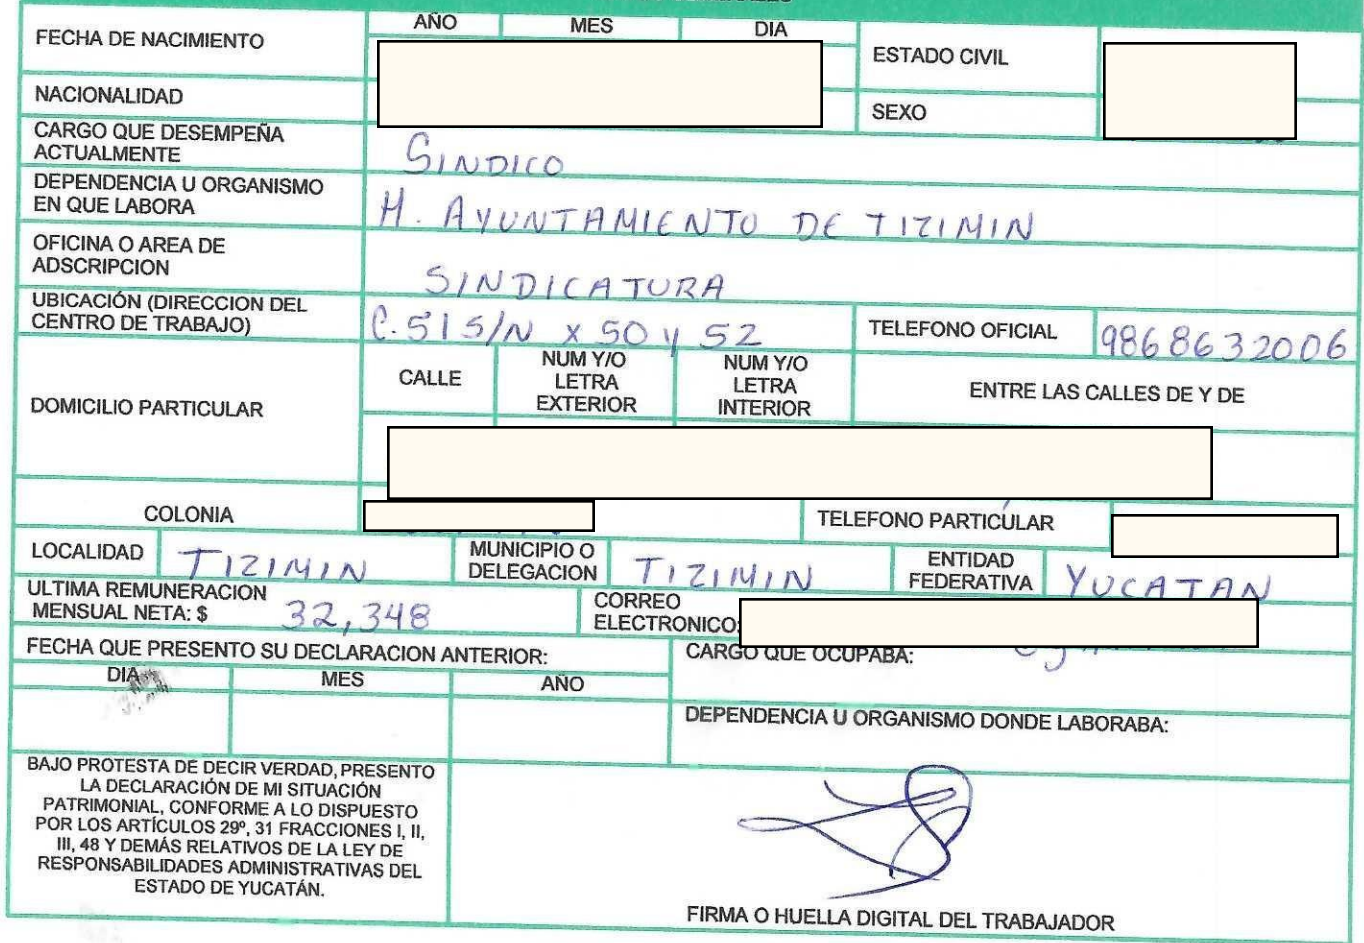 AÑO MES DIA
FECHA DE NACIMIENTO
ESTADO CIVIL
NACIONALIDAD
SEXO
CARGO QUE DESEMPEÑA
ACTUALMENTE
SINDICO
DEPENDENCIA U ORGANISMO
EN QUE LABORA
H. AYUNTAMIENTO DE TIZIMIN
OFICINA O AREA DE
ADSCRIPCION
SINDICATURA
UBICACIÓN (DIRECCION DEL
CENTRO DE TRABAJO)
C. 51 S/N x 50 y 52
TELEFONO OFICIAL
9868632006
DOMICILIO PARTICULAR
CALLE
NUM Y/O
LETRA
EXTERIOR
NUM Y/O
LETRA
INTERIOR
ENTRE LAS CALLES DE Y DE
COLONIA
TELEFONO PARTICULAR
LOCALIDAD
TIZIMIN
MUNICIPIO O
DELEGACION
TIZIMIN
ENTIDAD
FEDERATIVA
YUCATAN
ULTIMA REMUNERACION
MENSUAL NETA: $
32,348
CORREO
ELECTRONICO:
FECHA QUE PRESENTO SU DECLARACION ANTERIOR:
DIA MES AÑO
CARGO QUE OCUPABA:
DEPENDENCIA U ORGANISMO DONDE LABORABA:
BAJO PROTESTA DE DECIR VERDAD, PRESENTO
LA DECLARACIÓN DE MI SITUACIÓN
PATRIMONIAL, CONFORME A LO DISPUESTO
POR LOS ARTÍCULOS 29º, 31 FRACCIONES I, II,
III, 48 Y DEMÁS RELATIVOS DE LA LEY DE
RESPONSABILIDADES ADMINISTRATIVAS DEL
ESTADO DE YUCATÁN.
FIRMA O HUELLA DIGITAL DEL TRABAJADOR